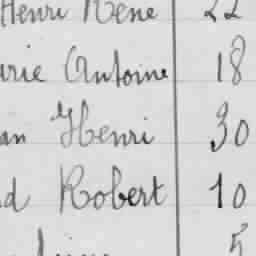 Henri René 22
rie Antoine 18
an Henri 30
d Robert 10
5